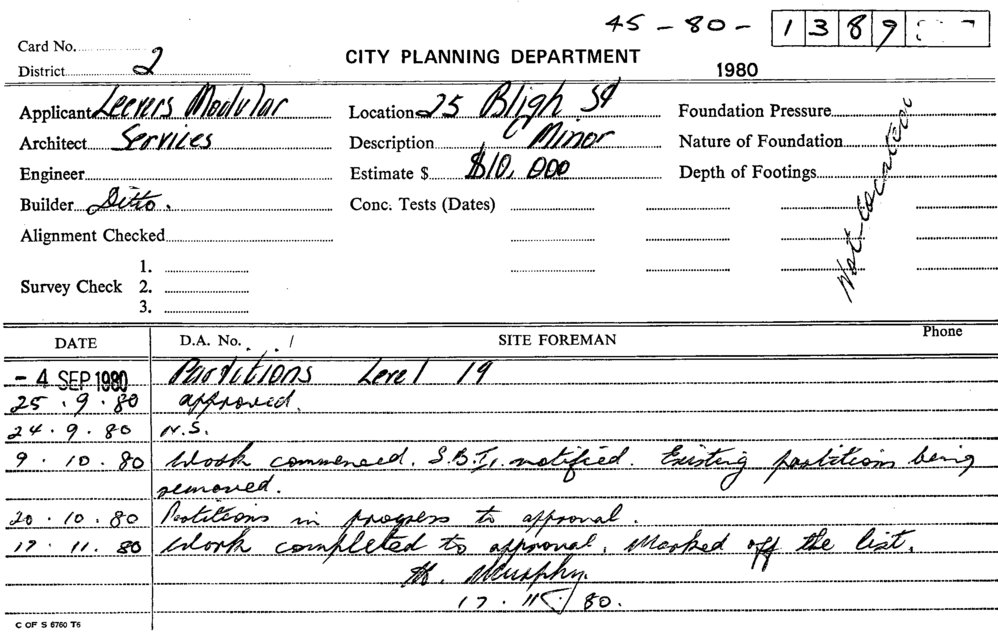 45 - 80 - 1389
Card No.
District 2
CITY PLANNING DEPARTMENT
1980
Applicant Leevers Modular
Location 25 Bligh St
Foundation Pressure
Architect Services
Description Minor
Nature of Foundation
Engineer
Estimate $ $10,000
Depth of Footings
Builder Ditto.
Conc. Tests (Dates)
Alignment Checked
Survey Check
1.
2.
3.
DATE D.A. No. / SITE FOREMAN Phone
- 4 SEP 1980 Partitions Level 19
25 . 9 . 80 approved.
24 . 9 . 80 N.S.
9 . 10 . 80 Work commenced. notified. Existing partitions being
removed.
20 . 10 . 80 Partitions in progress to approval.
17 . 11 . 80 Work completed to approval. Marked off the list.
Murphy.
17 . 11 / 80.
C OF S 6760 T6